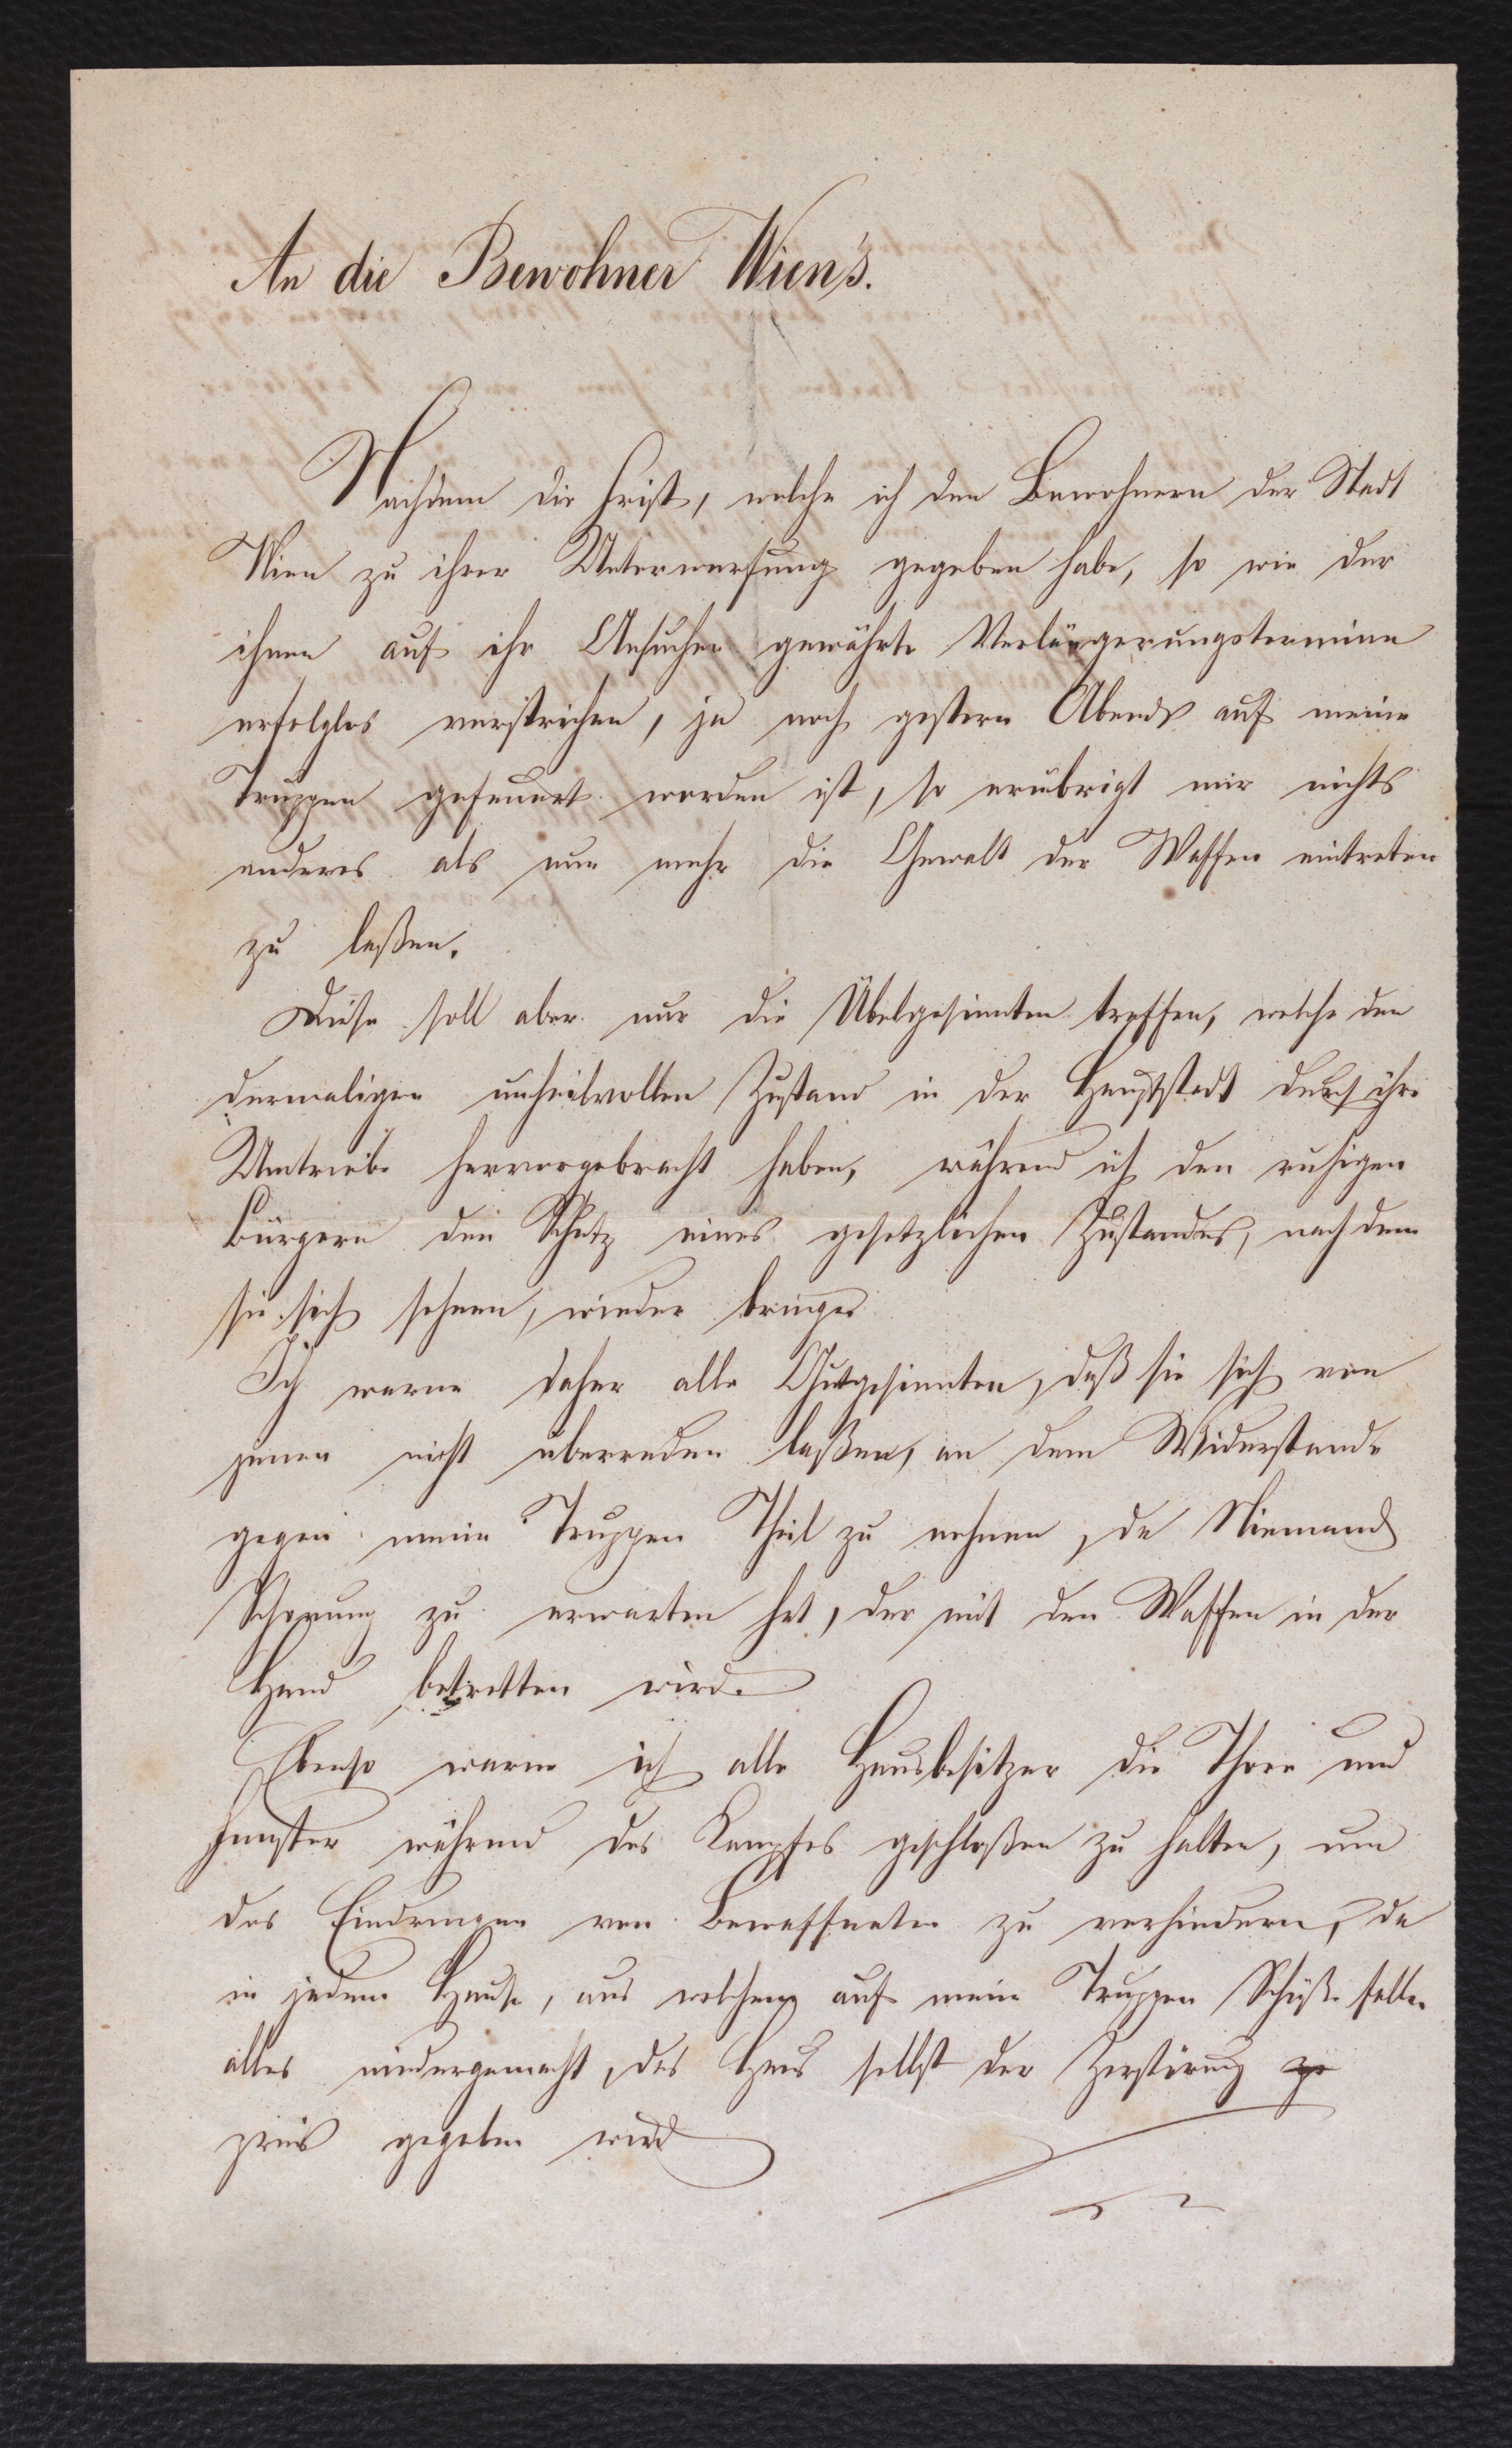 An die Bewohner Wien's.
Nachdem die Frist, welche ich den Bewohnern der Stadt
Wien zu ihrer Unterwerfung gegeben habe, so wie der
ihnen auf ihr Ansuchen gewährte Verlängerungstermine
erfolglos verstrichen, ja noch gestern Abends auf meine
Truppen gefeuert worden ist, so erübrigt mir nichts
anderes als nun mehr die Gewalt der Waffen eintreten
zu laßen.
Diese soll aber nur die Übelgesinnten treffen, welche den
dermaligen unheilvollen Zustand in der Hauptstadt durch ihre
Umtriebe hervorgebracht haben, während ich den ruhigen
Bürgern den Schutz eines gesetzlichen Zustandes, nach dem
sie sich sehnen, wieder bringe.
Ich warne daher alle Gutgesinnten, daß sie sich von
jenen nicht überreden laßen, an dem Widerstande
gegen meine Truppen Theil zu nehmen, da Niemand
Schonung zu erwarten hat, der mit den Waffen in der
Hand betretten wird.
Ebenso warne ich alle Hausbesitzer die Thore und
Fenster während des Kampfes geschloßen zu halten, um
das Eindringen von Bewaffneten zu verhindern, da
in jedem Hause, aus welchem auf meine Truppen Schüße fallen
alles niedergemacht, das Haus selbst der Zerstörung
preis gegeben wird